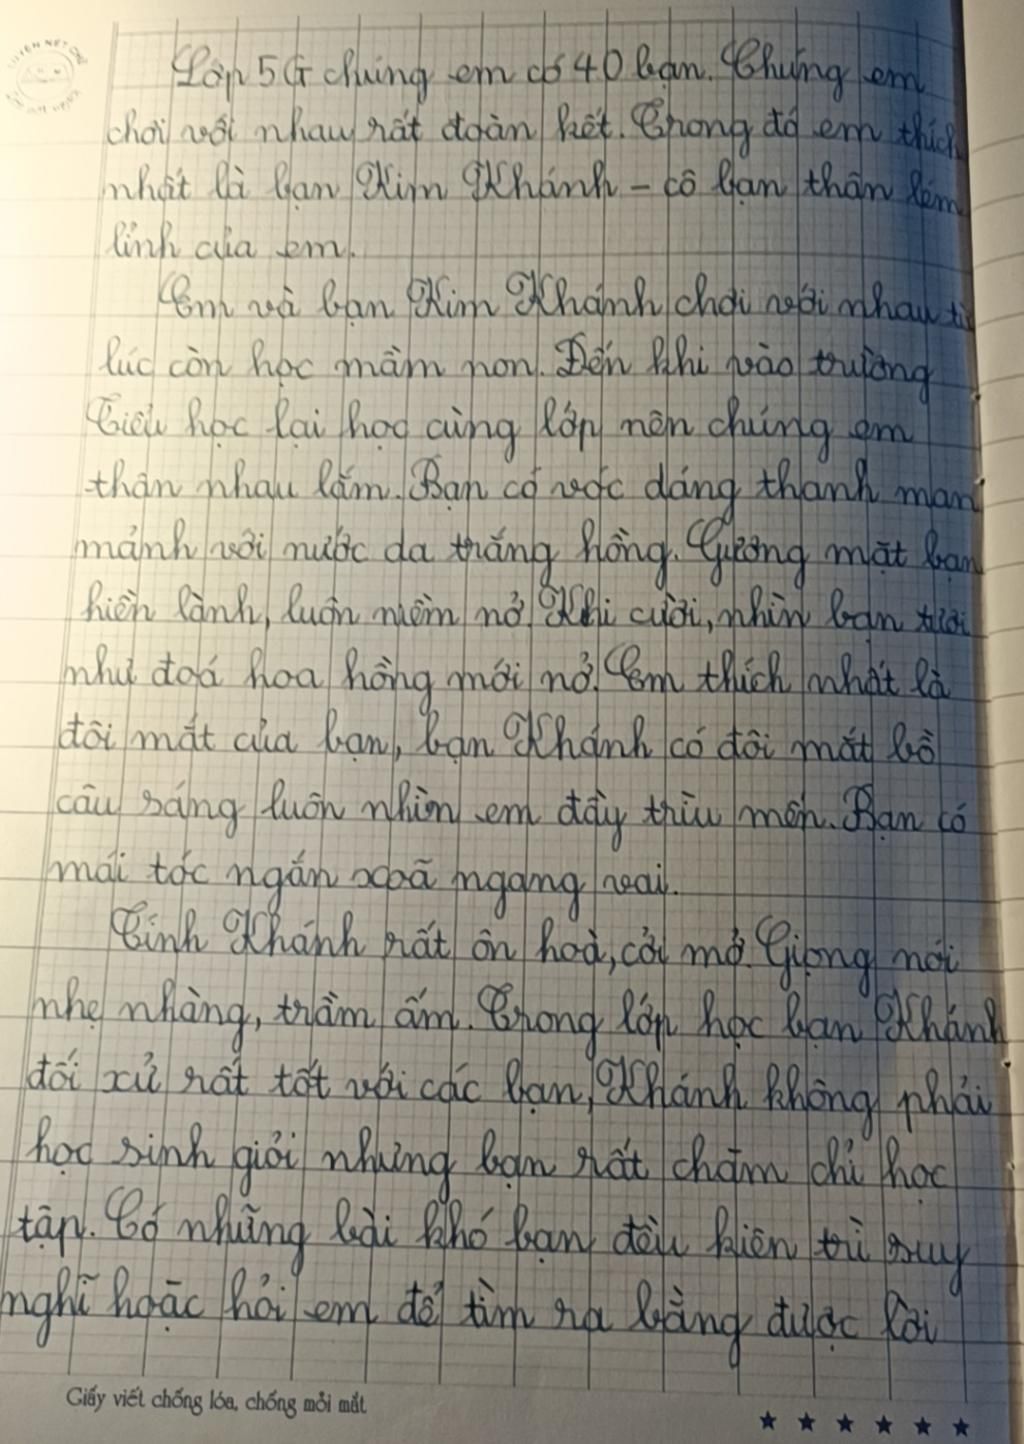 Lớp 5G chúng em có 40 bạn. Chúng em
chơi với nhau rất đoàn kết. Trong đó em thích
nhất là bạn Kim Khánh - cô bạn thân lém
lỉnh của em.
Em và bạn Kim Khánh chơi với nhau từ
lúc còn học mầm non. Đến khi vào trường
Tiểu học lại học cùng lớp nên chúng em
thân nhau lắm. Bạn có vóc dáng thanh man
mảnh với nước da trắng hồng. Gương mặt bạn
hiền lành, luôn niềm nở. Khi cười, nhìn bạn tươi
như đoá hoa hồng mới nở. Em thích nhất là
đôi mắt của bạn, bạn Khánh có đôi mắt bồ
câu sáng luôn nhìn em đầy trìu mến. Bạn có
mái tóc ngắn xoã ngang vai.
Tính Khánh rất ôn hoà, cởi mở. Giọng nói
nhẹ nhàng, trầm ấm. Trong lớp học bạn Khánh
đối xử rất tốt với các bạn, Khánh không phải
học sinh giỏi nhưng bạn rất chăm chỉ học
tập. Có những bài khó bạn đều kiên trì suy
nghĩ hoặc hỏi em để tìm ra bằng được lời
Giấy viết chống lóa, chống mỏi mắt